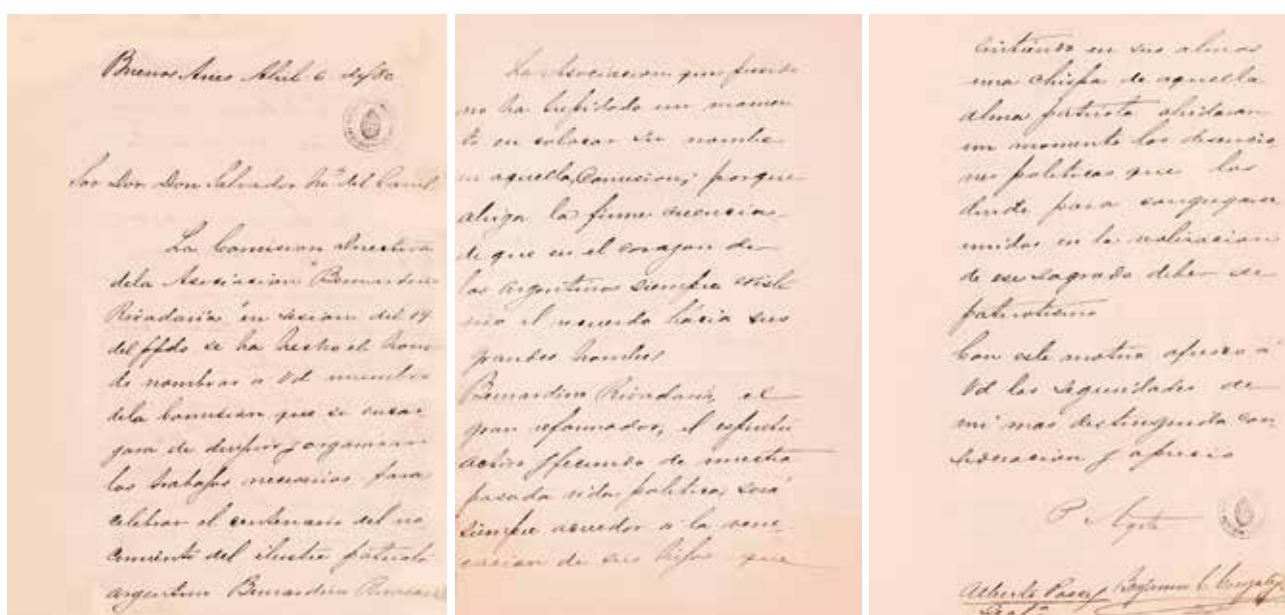 Buenos Aires Abril 6 de 1880
Señor Don Salvador Mª del Carril
La Comision Directiva
dela Asociacion "Bernardino
Rivadavia" en sesion del 19
del ppdo se ha hecho el honor
de nombrar a Vd miembro
dela Comision que se encar
gará de dirijir y organizar
los trabajos necesarios para
celebrar el centenario del na
cimiento del ilustre patriota
argentino Bernardino Rivadavia
La Asociacion que presido
no ha trepidado un momen
to en colocar su nombre
en aquella Comision; porque
abriga la firme creencia
de que en el corazon de
los Argentinos siempre existe
vivo el recuerdo hácia sus
grandes hombres
Bernardino Rivadavia, el
gran reformador, el espiritu
activo y fecundo de nuestra
pasada vida politica, será
siempre acreedor a la vene
racion de sus hijos que
sintiendo en sus almas
una chispa de aquella
alma patriota olvidaran
un momento las disencio
nes politicas que los
divide para congregarse
unidos en la realizacion
de ese sagrado deber de
patriotismo
Con este motivo ofrezco á
Vd las seguridades de
mi mas distinguida con
sideracion y aprecio
Alberto Benjamin C. Gonzalez